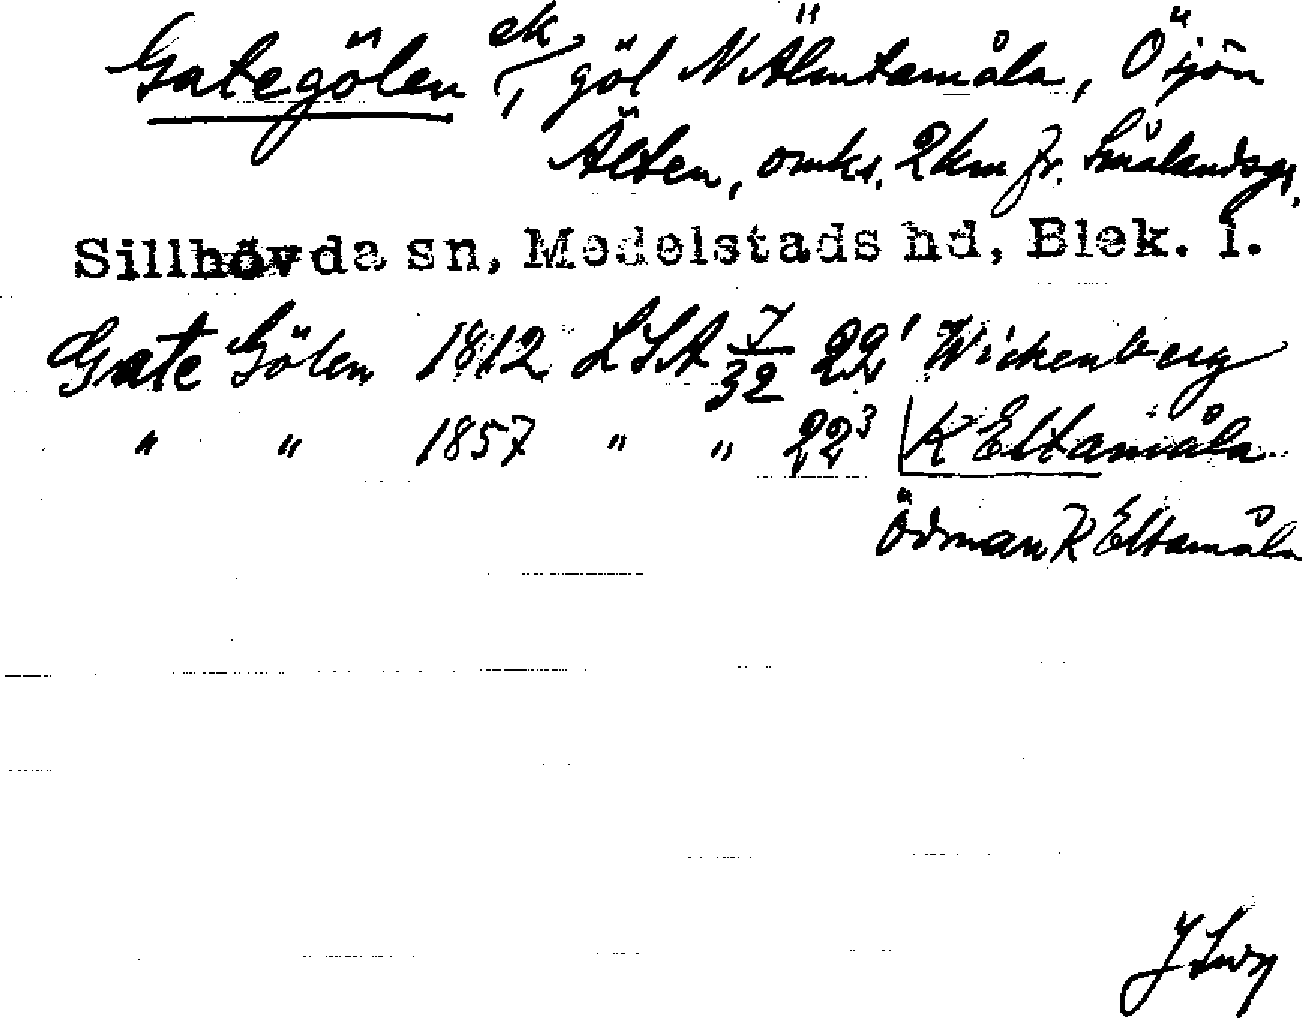 Gategölen, ek göl N Älmtamåla, Ö sjön
Älten, omkr. 2 km fr. Smålandsgr.
Sillhövda sn, Medelstads hd, Blek. l.
Gate Gölen 1812 LSA 7/32 22¹ Wickenberg
" " 1857 " " 22³ K Eltamåla
Ödman K Eltamåla